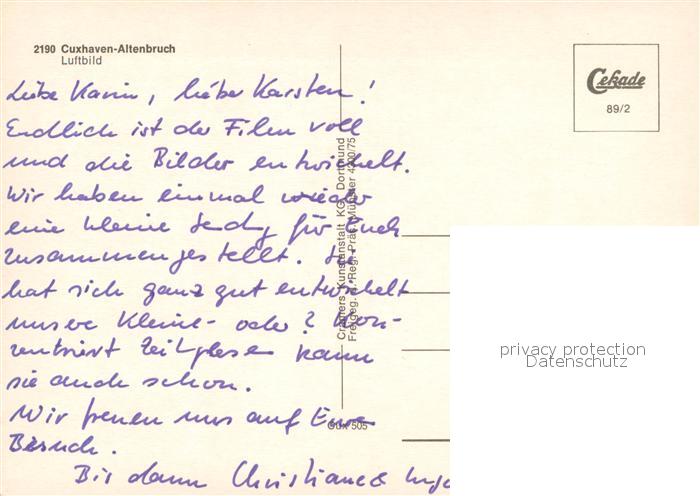 2190 Cuxhaven-Altenbruch
Luftbild
Cekade
89/2
Liebe Karin, lieber Karsten!
Endlich ist der Film voll
und die Bilder entwickelt.
Wir haben einmal wieder
eine kleine Sendg für Euch
zusammengestellt. Sie
hat sich ganz gut entwickelt
unsere Kleine - oder? Kon-
zentriert Zeitg lesen kann
sie auch schon.
Wir freuen uns auf Euren
Besuch.
Bis dann Christiane &
Cramers Kunstanstalt KG, Dortmund
Freigeg. d. Reg. Präs. Münster
Cux 505
privacy protection
Datenschutz